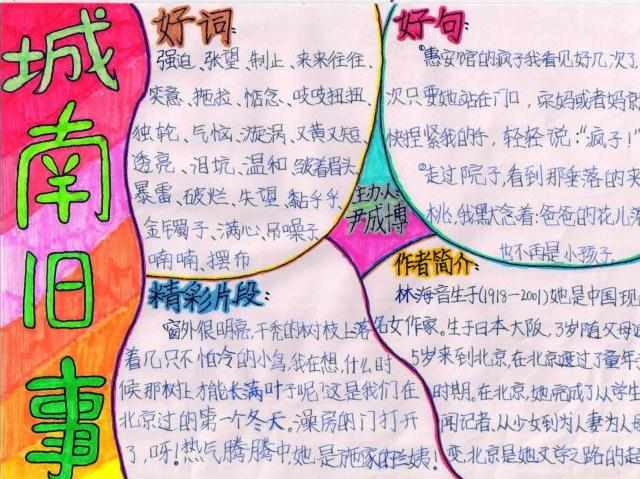 城南旧事
好词:
强迫、张望、制止、来来往往、
笑意、拖拉、惦念、吱吱扭扭、
独轮、气恼、漩涡、又黄又短、
透亮、泪坑、温和、皱着眉头、
暴雷、破烂、失望、黏乎乎、
金镯子、满心、吊嗓子、
喃喃、摆布
好句:
①惠安馆的疯子我看见好几次了
次只要她站在门口,宋妈或者妈
快捏紧我的手,轻轻说:“疯子!
②走过院子,看到那垂落的
桃,我默念着:爸爸的花儿
也不再是小孩子
主办人:
尹成博
精彩片段:
窗外很明亮,干秃的树枝上落
着几只不怕冷的小鸟,我在想,什么时
候那树上才能长满叶子呢?这是我们在
北京过的第一个冬天。澡房的门打开
了,呀!热气腾腾中,她是
作者简介:
林海音生于(1918—2001)她是中国现
名女作家。生于日本大阪,3岁随父母
5岁来到北京,在北京度过了童年
时期。在北京,她完成了从学生
闻记者,从少女到为人妻为人
变,北京是她文学之路的起